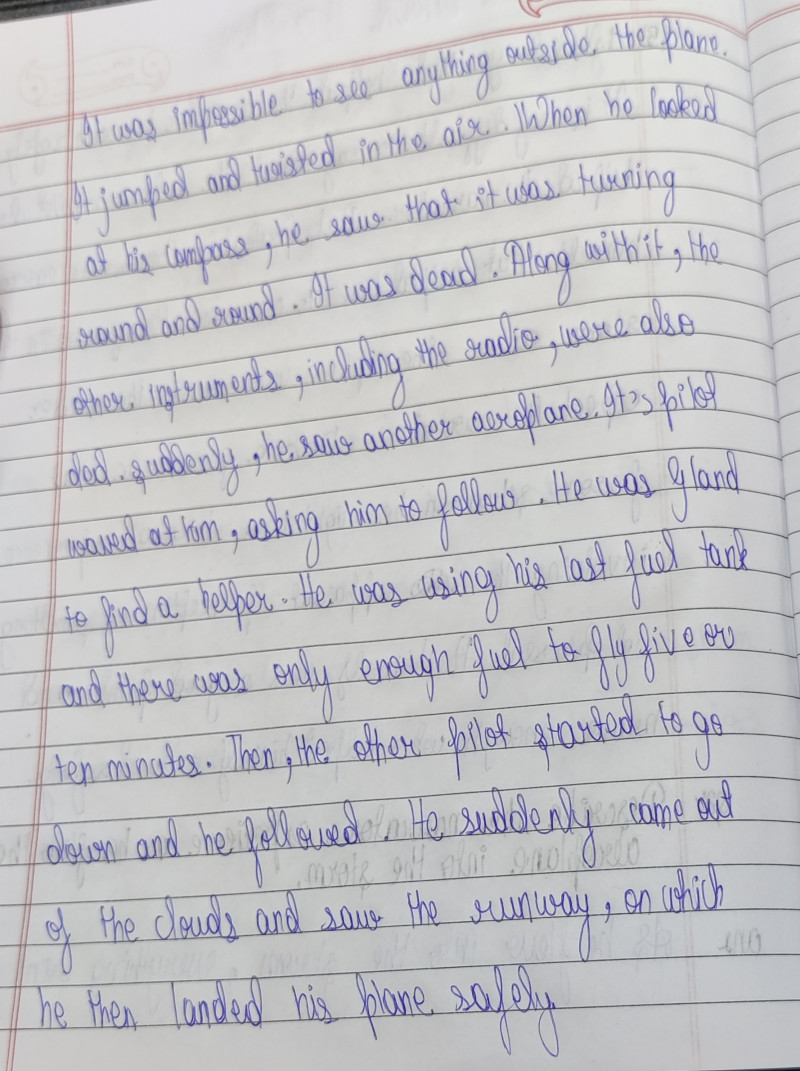 It was impossible to see anything outside the plane.
It jumped and twisted in the air. When he looked
at his compass, he saw that it was turning
round and round. It was dead. Along with it, the
other instruments, including the radio, were also
ded. suddenly, he saw another aeroplane. It's pilot
waved at him, asking him to follow. He was gland
to find a helper. He was using his last fuel tank
and there was only enough fuel to fly five or
ten minutes. Then, the other pilot started to go
down and he followed. He suddenly came out
of the clouds and saw the runway, on which
he then landed his plane safely